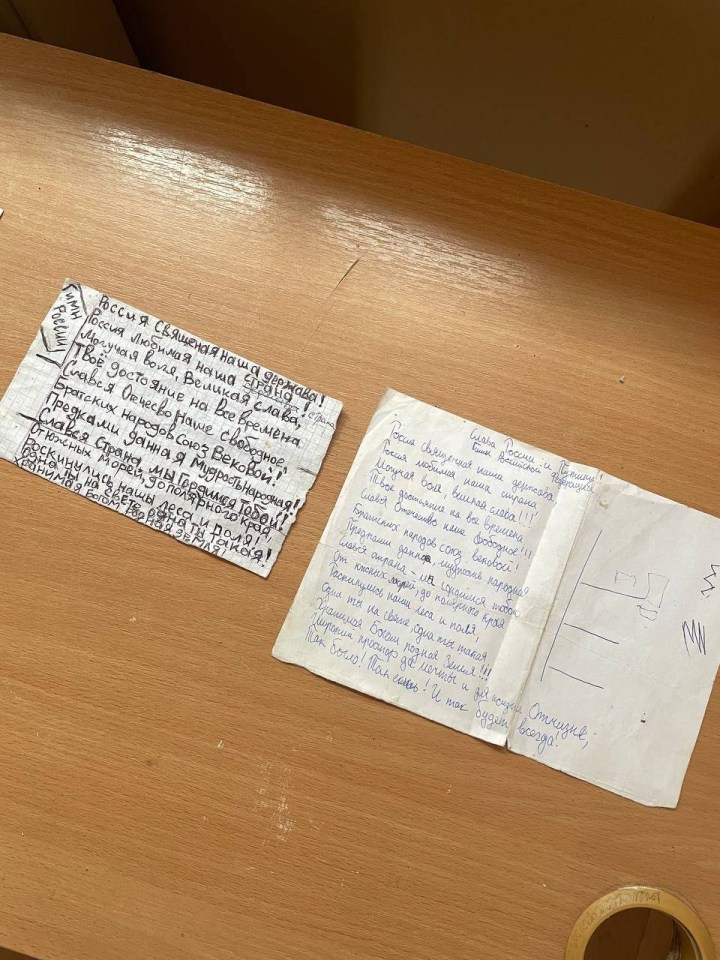 Гимн
России
Россия священая наша держава!
Россия любимая наша страна!
страна
Могучая воля, Великая слава,
Твоё достояние на все времена
Славься Отечесво наше свободное,
Братских народов союз Вековой!
Предками данная мудрость народная!
Славься страна, мы гордимся Тобой!
От южных морей, до полярного края
Раскинулись нашы леса и поля!
Одна ты на свете, одна ты такая!
Хранимая Богом родная земля!
Слава России и
Гимн Российской Федерации!
Россия священная наша держава
Россия любимая, наша страна
Могучая воля, великая слава!!!
Твоё достояние на все времена
Славься Отечество наше свободное!!!
Братских народов союз вековой!
Предками данная, мудрость народная
Славься страна - мы гордимся тобою
От южных морей, до полярного края
Раскинулись наши леса и поля,
Одна ты на свете, одна ты такая
Хранимая Богом родная Земля!!!
Широкий простор для мечты и для жизни Отчизне,
Так было! Так есть! И так будет всегда!